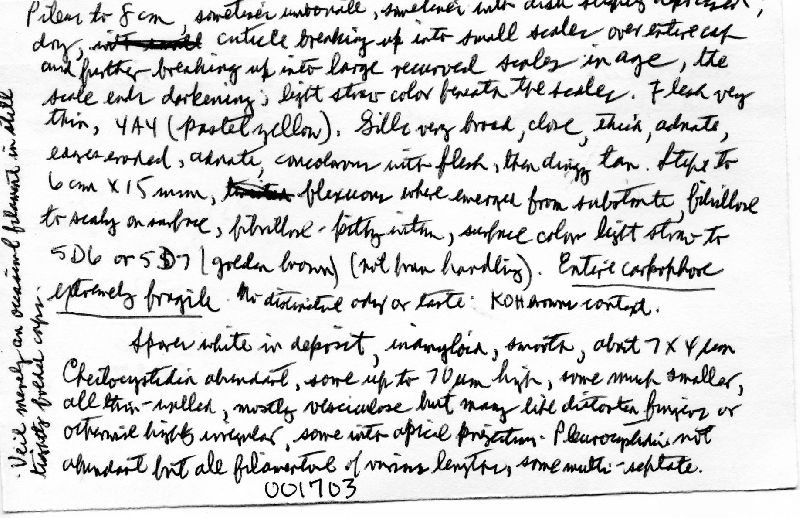 Pileus to 8 cm, sometimes umbonate, sometimes with disk slightly depressed,
dry, cuticle breaking up into small scales over entire cap
and further breaking up into large recurved scales in age, the
scale ends darkening; light straw color beneath the scales. Flesh very
thin, 4A4 (pastel yellow). Gills very broad, close, thick, adnate,
edges eroded, adnate, concolorous with flesh, then dingy tan. Stipe to
6 cm X 15 mm, flexuous where emerged from substrate, fibrillose
to scaly on surface, fibrillose-pithy within, surface color light straw to
5D6 or 5D7 (golden brown) (not from handling). Entire carpophore
extremely fragile. No distinctive odor or taste. KOH browns context.
Spores white in deposit, inamyloid, smooth, about 7 X 4 µm
Cheilocystidia abundant, some up to 70 µm high, some much smaller,
all thin-walled, mostly vesiculose but many like distorted fingers or
otherwise highly irregular, some with apical projections. Pleurocystidia not
abundant but all filamentous of various lengths, some multi-septate.
001703
Veil merely an occasional filament in still
tightly folded caps.